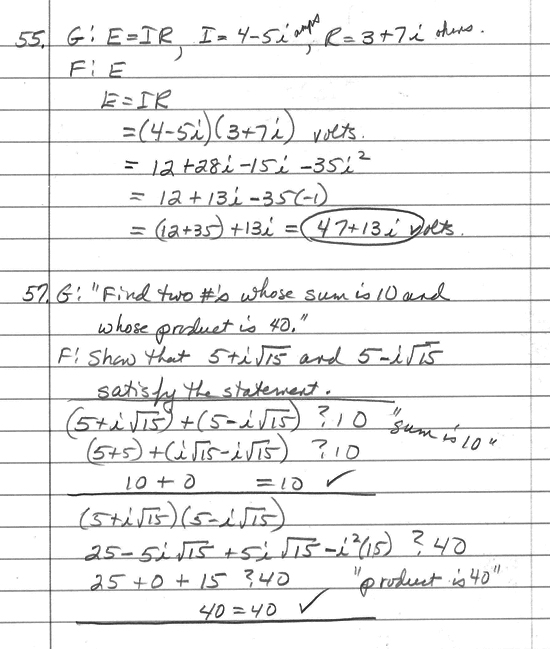 55. G: E=IR, I=4-5i amps, R=3+7i ohms.
F: E
E=IR
=(4-5i)(3+7i) volts.
= 12+28i-15i-35i²
= 12+13i-35(-1)
= (12+35)+13i = 47+13i volts.
57. G: "Find two #'s whose sum is 10 and
whose product is 40."
F: Show that 5+i√15 and 5-i√15
satisfy the statement.
(5+i√15)+(5-i√15) ? 10 "sum is 10"
(5+5)+(i√15-i√15) ? 10
10+0 =10 ✓
(5+i√15)(5-i√15)
25-5i√15+5i√15-i²(15) ? 40
25+0+15 ? 40 "product is 40"
40=40 ✓